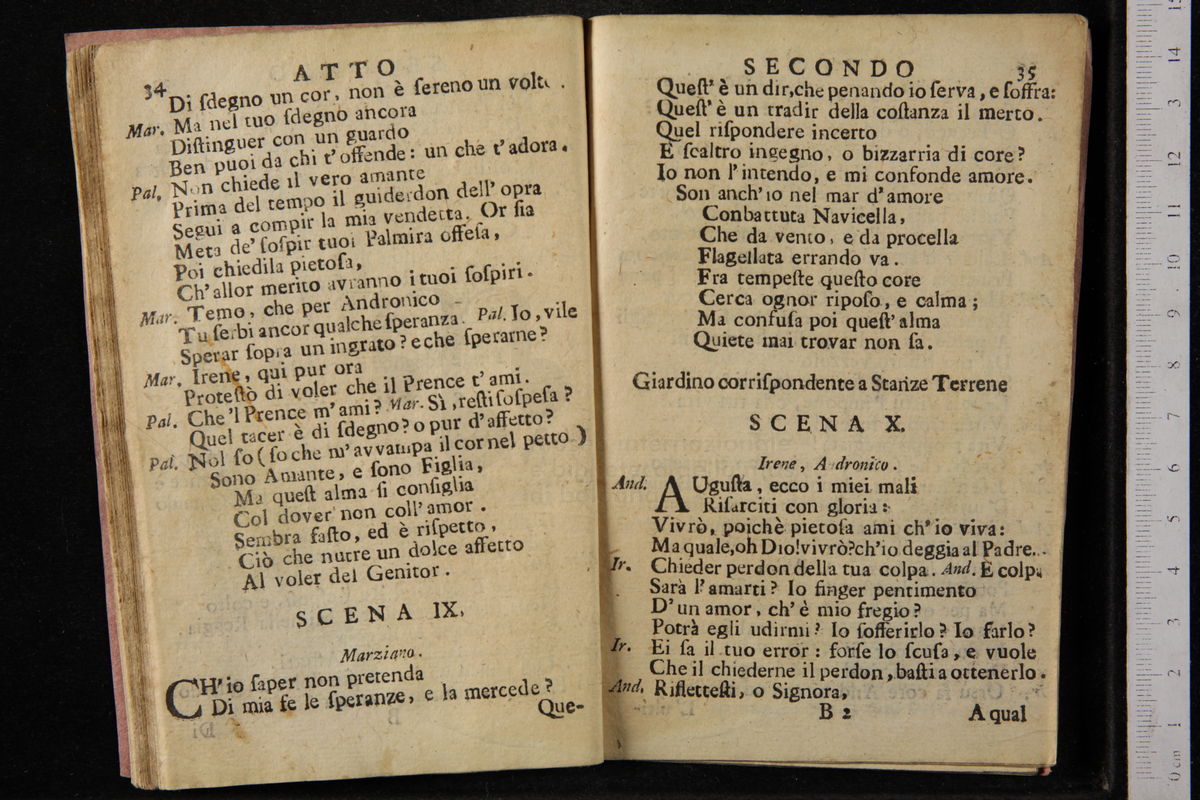 34 ATTO
Di ſdegno un cor, non è ſereno un volto.
Mar. Ma nel tuo ſdegno ancora
Diſtinguer con un guardo
Ben puoi da chi t'offende: un che t'adora.
Pal. Non chiede il vero amante
Prima del tempo il guiderdon dell' opra
Segui a compir la mia vendetta. Or ſia
Meta de' ſoſpir tuoi Palmira offeſa,
Poi chiedila pietoſa,
Ch'allor merito avranno i tuoi ſoſpiri.
Mar. Temo, che per Andronico
Tu ſerbi ancor qualche ſperanza. Pal. Io, vile
Sperar ſopra un ingrato? e che ſperarne?
Mar. Irene, qui pur ora
Proteſtò di voler che il Prence t' ami.
Pal. Che'l Prence m' ami? Mar. Sì, reſti ſoſpeſa?
Quel tacer è di ſdegno? o pur d'affetto?
Pal. Nol ſo (ſo che m'avvampa il cor nel petto)
Sono Amante, e ſono Figlia,
Ma queſt alma ſi conſiglia
Col dover non coll' amor.
Sembra faſto, ed è riſpetto,
Ciò che nutre un dolce affetto
Al voler del Genitor.
SCENA IX.
Marziano.
CH'io ſaper non pretenda
Di mia fe le ſperanze, e la mercede?
Que-
SECONDO 35
Queſt' è un dir, che penando io ſerva, e ſoffra:
Queſt' è un tradir della coſtanza il merto.
Quel riſpondere incerto
E ſcaltro ingegno, o bizzarria di core?
Io non l'intendo, e mi confonde amore.
Son anch'io nel mar d'amore
Conbattuta Navicella,
Che da vento, e da procella
Flagellata errando va.
Fra tempeſte queſto core
Cerca ognor ripoſo, e calma;
Ma confuſa poi queſt' alma
Quiete mai trovar non ſa.
Giardino corriſpondente a Stanze Terrene
SCENA X.
Irene, Andronico.
And. AUguſta, ecco i miei mali
Riſarciti con gloria:
Vivrò, poichè pietoſa ami ch' io viva:
Ma quale, oh Dio! vivrò? ch'io deggia al Padre...
Ir. Chieder perdon della tua colpa. And. E colpa
Sarà l' amarti? Io finger pentimento
D' un amor, ch' è mio fregio?
Potrà egli udirmi? Io ſofferirlo? Io farlo?
Ir. Ei ſa il tuo error: forſe lo ſcuſa, e vuole
Che il chiederne il perdon, baſti a ottenerlo.
And. Riflettesti, o Signora,
B 2 A qual